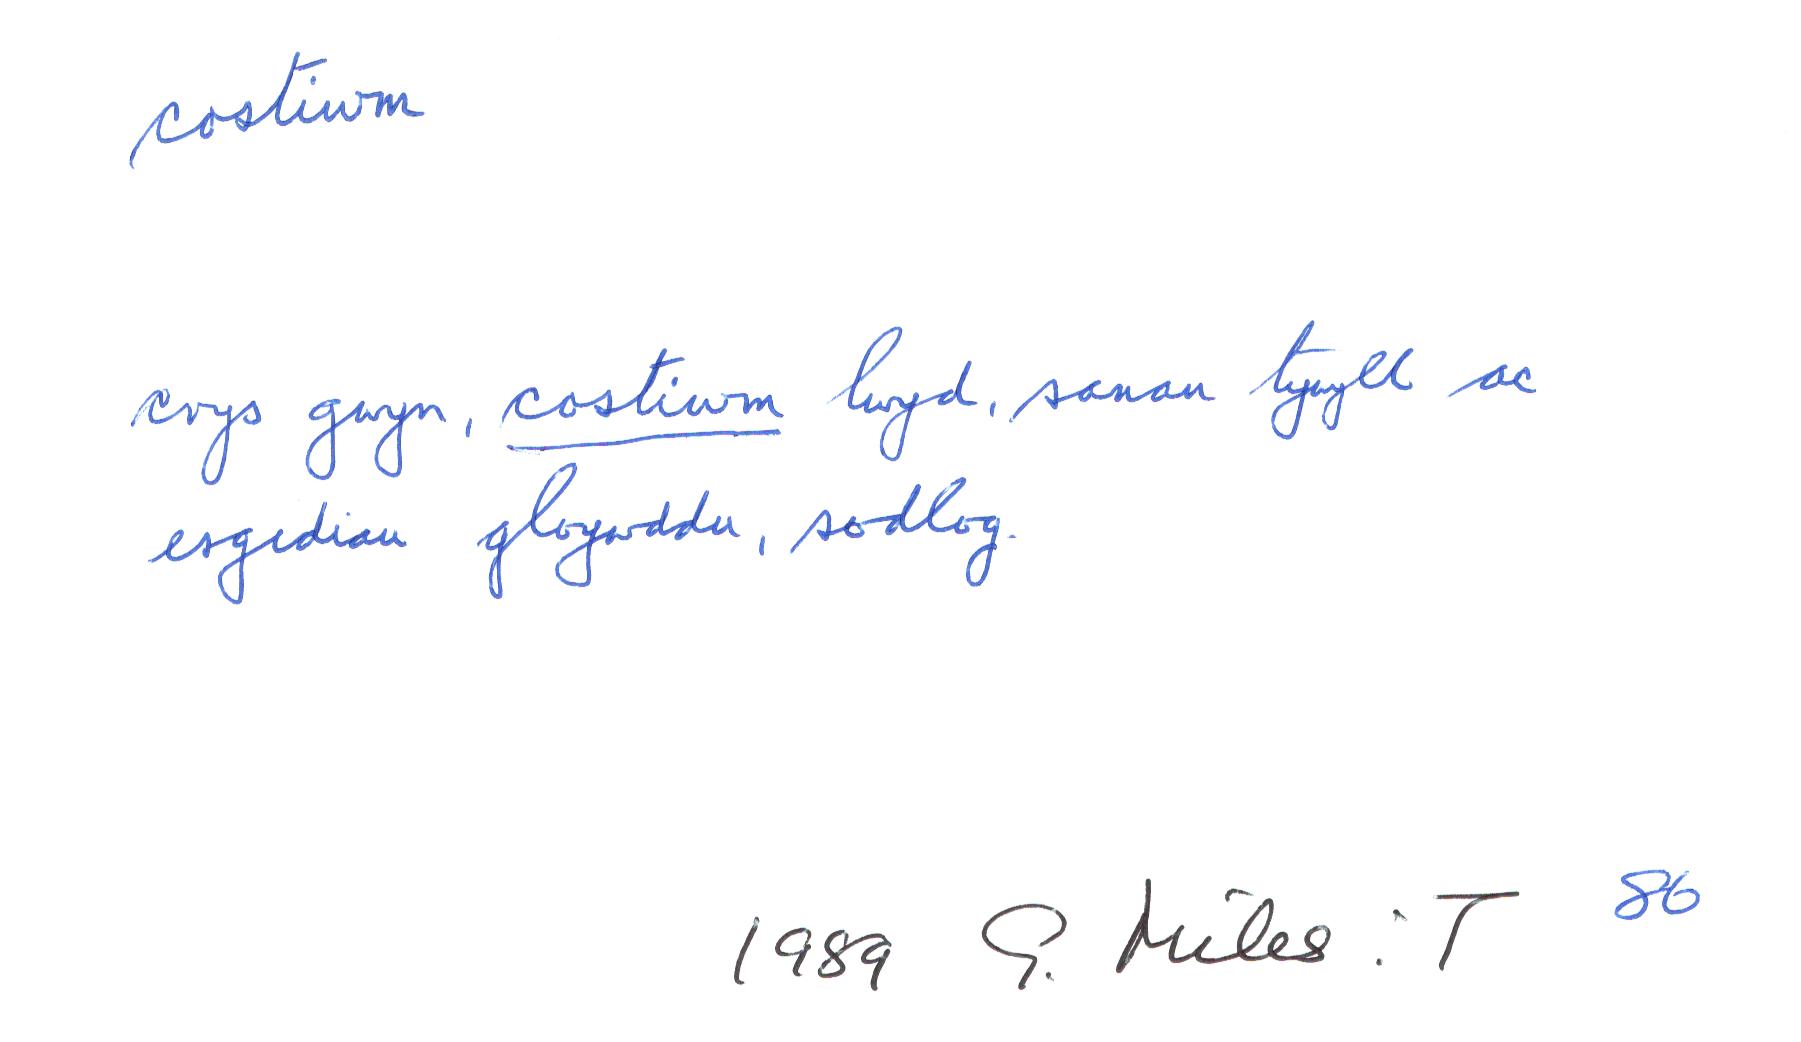 costiwm
crys gwyn, costiwm lwyd, sanau tywyll ac
esgidiau gloywddu, sodlog.
1989 G. Miles : T 86